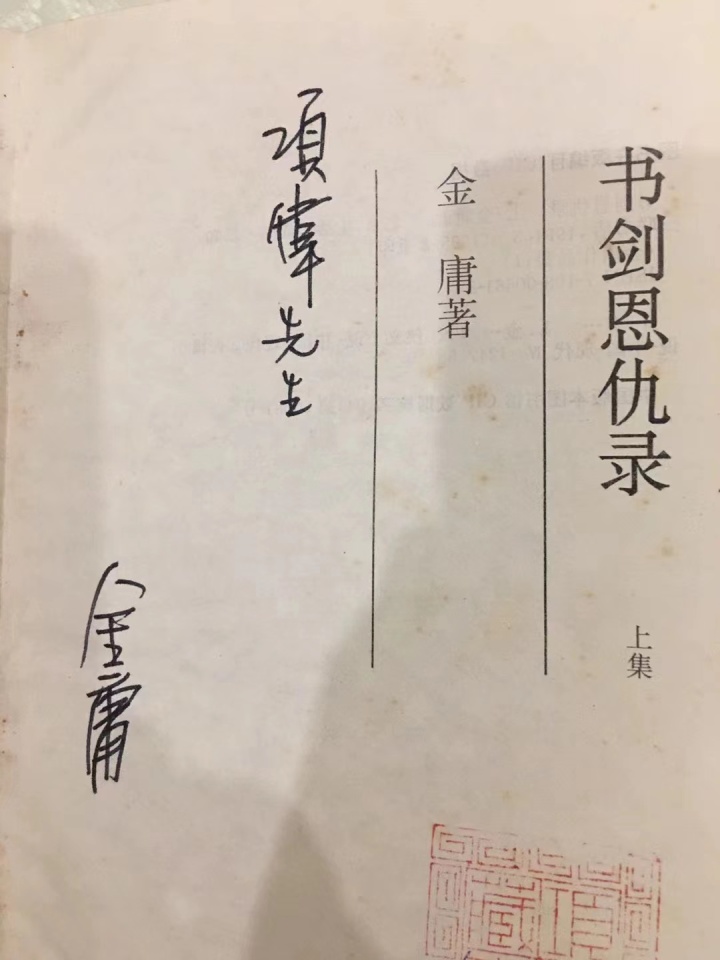 书剑恩仇录
上集
金庸著
項偉先生
金庸